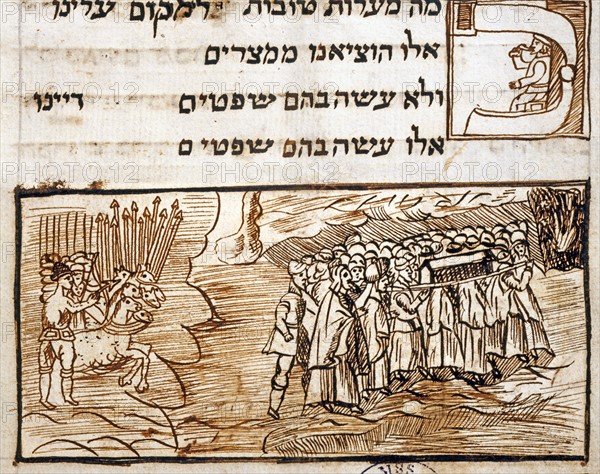 כמה מעלות טובות למקום עלינו
אלו הוציאנו ממצרים
ולא עשה בהם שפטים דיינו
אלו עשה בהם שפטים
MSS
PHOTO12